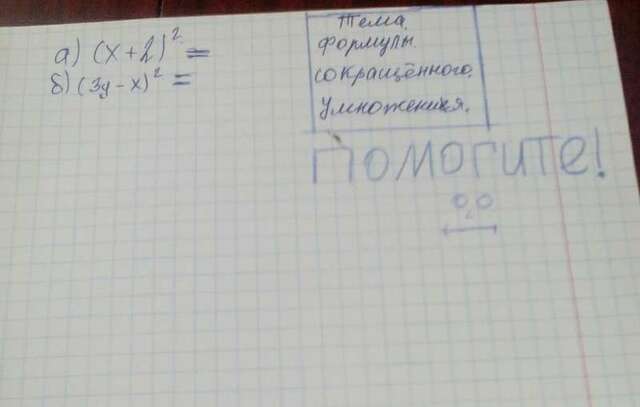 а) (x+2)² =
б) (3y-x)² =
Тема.
формулы.
сокращённого.
умножения.
Помогите!